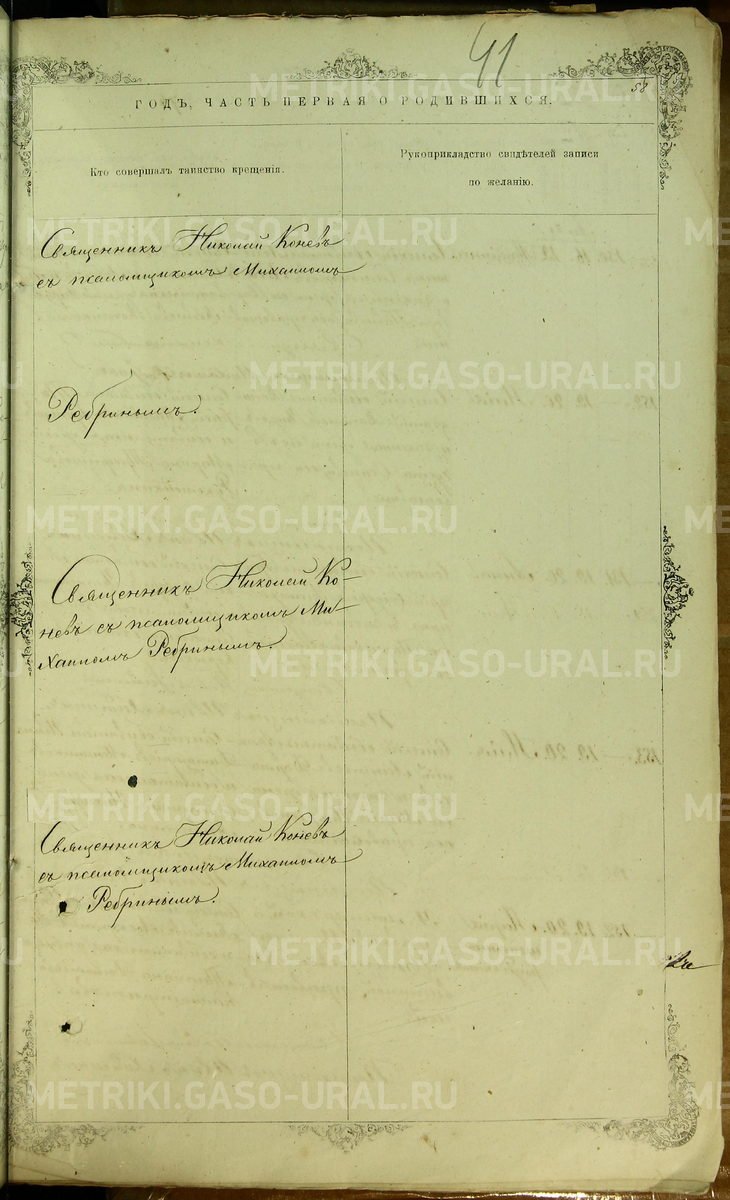 41
58
ГОДЪ, ЧАСТЬ ПЕРВАЯ О РОДИВШИХСЯ.
Кто совершалъ таинство крещенія.
Рукоприкладство свидѣтелей записи
по желанію.
Священникъ Николай Коневъ
съ псаломщикомъ Михаиломъ
Ребринымъ.
Священникъ Николай Ко-
невъ съ псаломщикомъ Ми-
хаиломъ Ребринымъ.
Священникъ Николай Коневъ
съ псаломщикомъ Михаиломъ
Ребринымъ.
METRIKI.GASO-URAL.RU